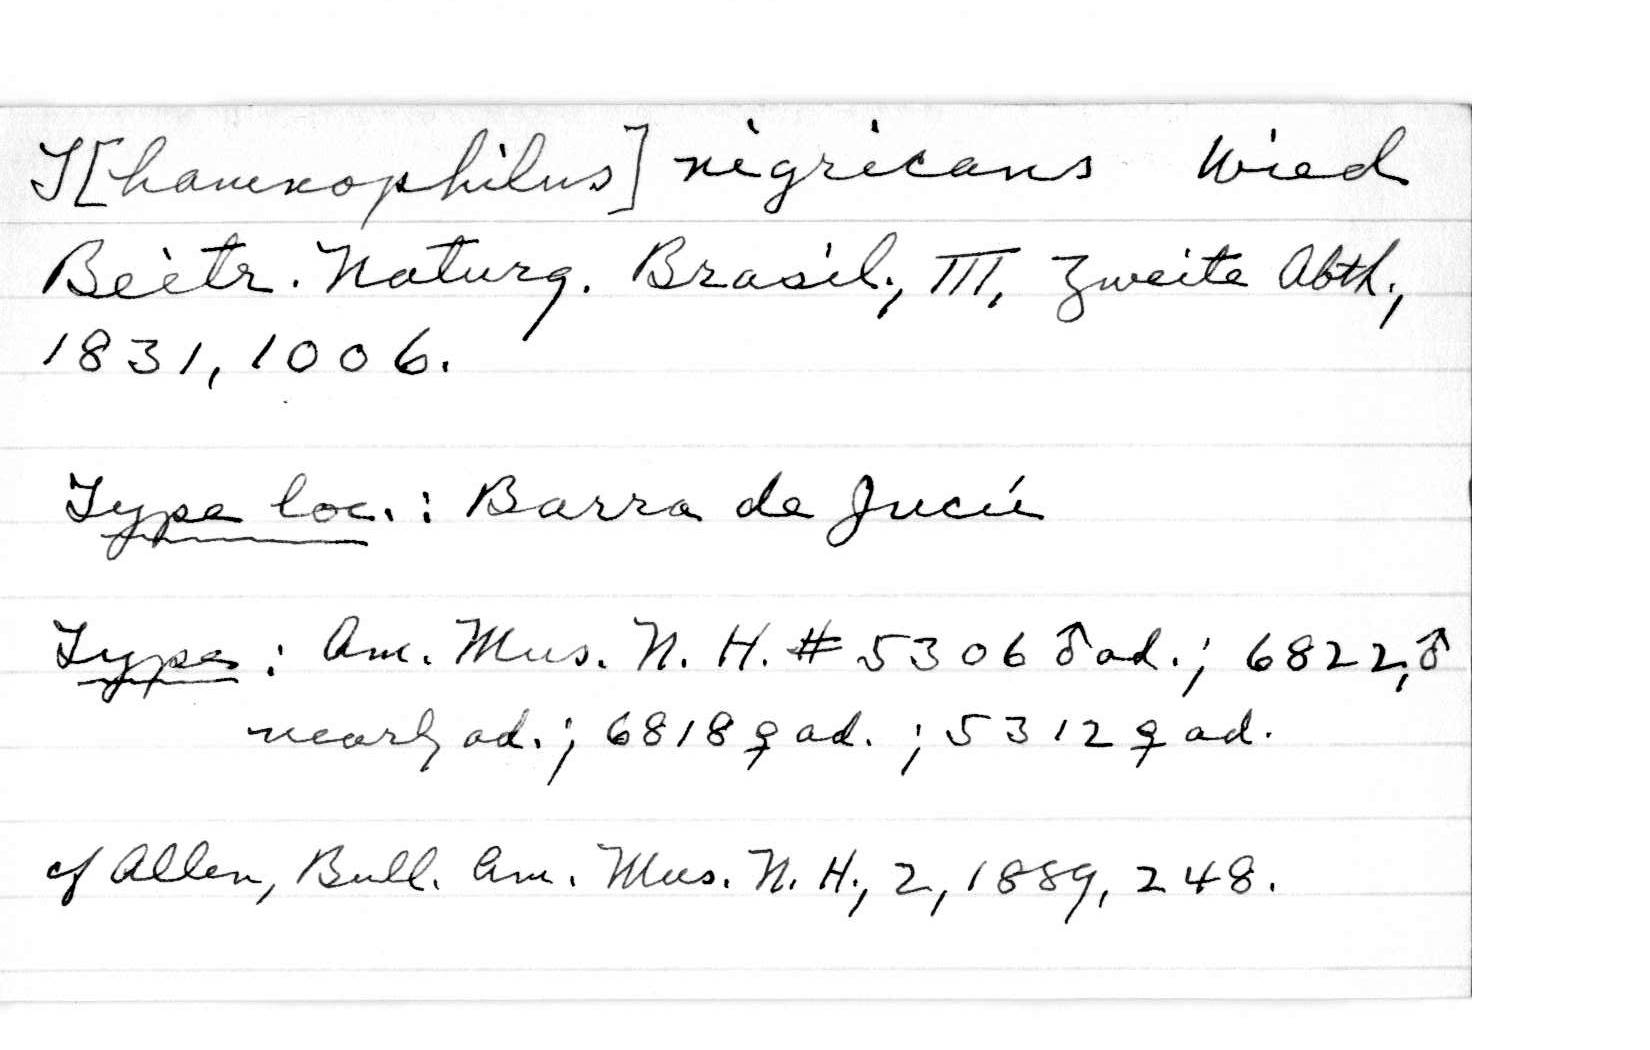 T[hamnophilus] nigricans Wied
Beitr. Naturg. Brasil., III, Zweite Abth.,
1831, 1006.
Type loc.: Barra de Jucú
Type: Am. Mus. N. H. # 5306 ♂ ad.; 6822, ♂
nearly ad.; 6818 ♀ ad.; 5312 ♀ ad.
cf Allen, Bull. Am. Mus. N. H., 2, 1889, 248.